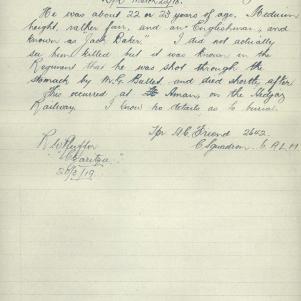 He was about 22 or 23 years of age, Medium
height, rather fair, and an Englishman, and
known as "Jack Baker." I did not actually
see him killed but it was known in the
Regiment that he was shot through the
stomach by M.G. Bullet and died shortly after.
This occurred at Amman, on the Hedjaz
Railway. I know no details as to burial.
Tpr A.C. Friend 2642.
C Squadron. 6 A.L.H.
"Karitza"